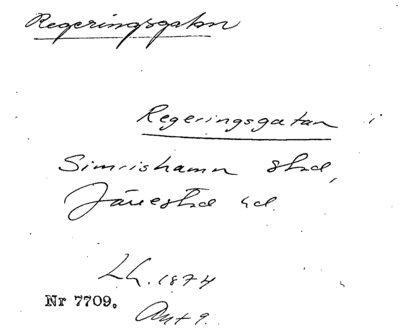 Regeringsgatan
Regeringsgatan i
Simrishamn stad,
Järrestad hd.
Lh. 1874
Nr 7709.
Ant 9.